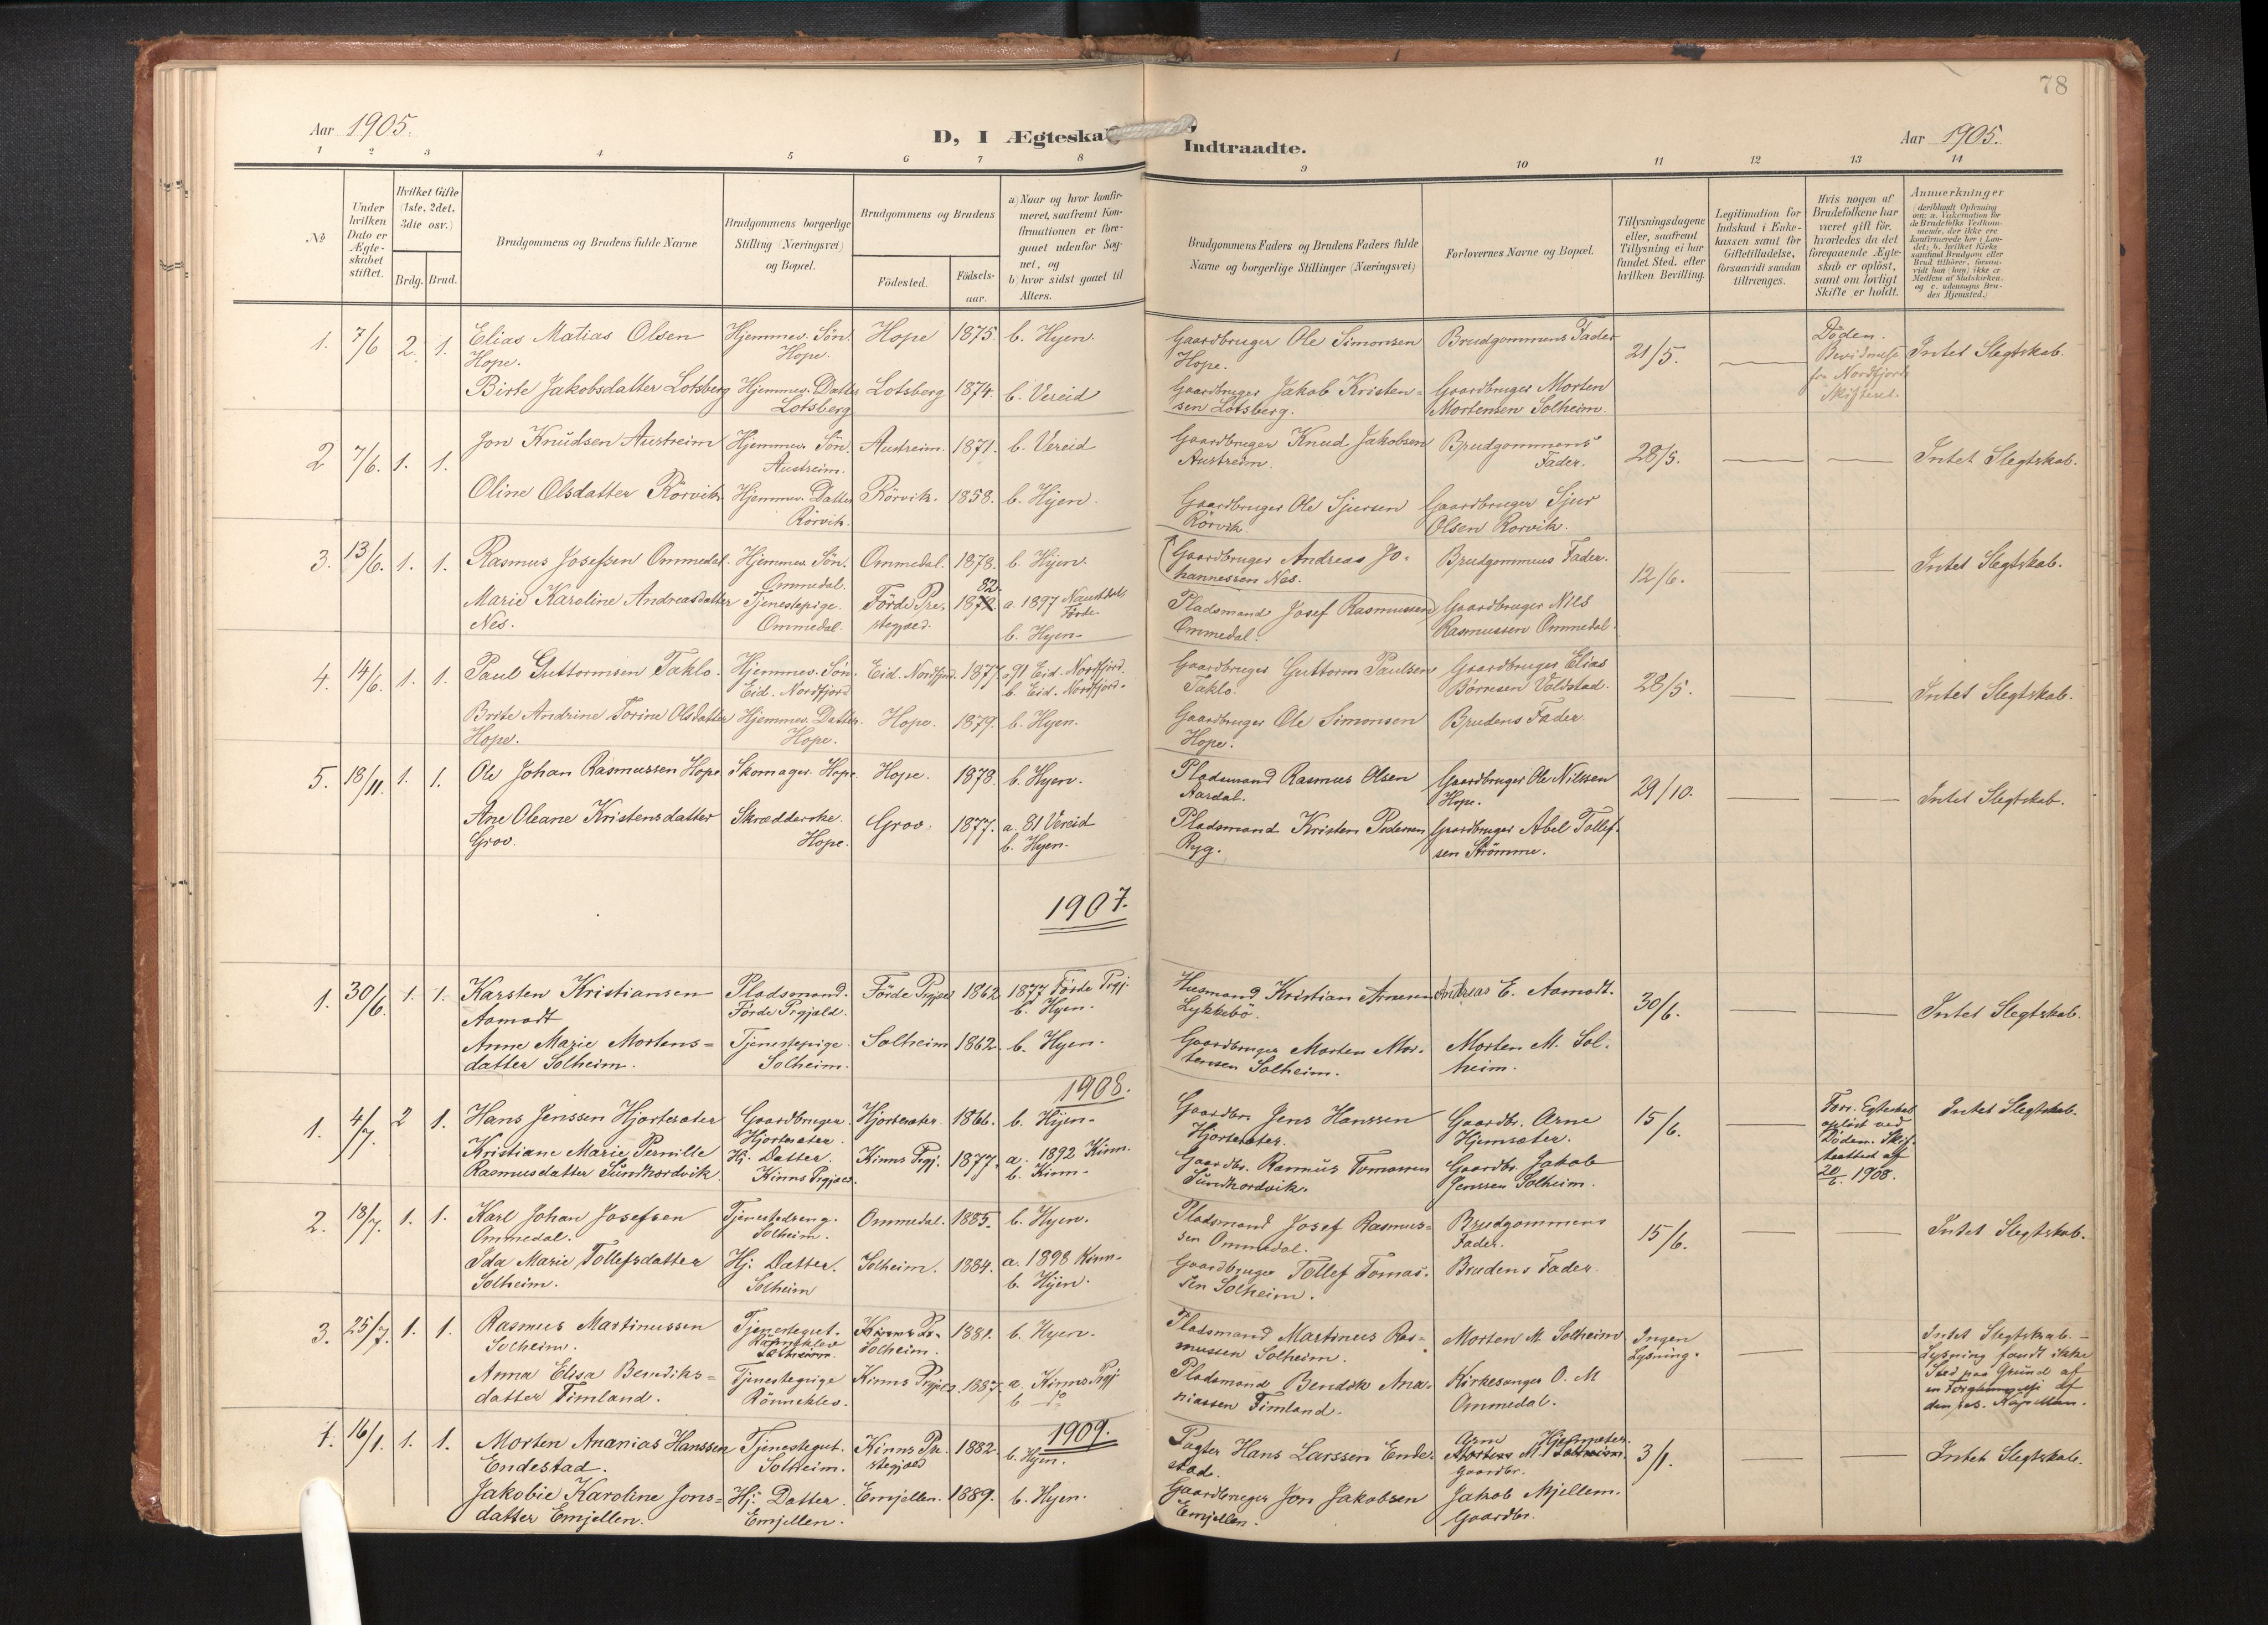 78
Aar 1905.
D, I Ægteska
Indtraadte.
Aar 1905.
1 2 3 4 5 6 7 8
9 10 11 12 13 14
№
Under hvilken Dato er Ægteskabet stiftet.
Hvilket Gifte (1ste, 2det, 3die osv.)
Brdg. Brud.
Brudgommens og Brudens fulde Navne
Brudgommens borgerlige Stilling (Næringsvei) og Bopæl.
Brudgommens og Brudens
Fødested. Fødselsaar.
a) Naar og hvor konfirmeret, saafremt Konfirmationen er foregaaet udenfor Sognet, og
b) hvor sidst gaaet til Alters.
Brudgommens Faders og Brudens Faders fulde Navne og borgerlige Stillinger (Næringsvei)
Forlovernes Navne og Bopæl.
Tillysningsdagene eller, saafremt Tillysning ei har fundet Sted, efter hvilken Bevilling.
Legitimation for Indskud i Enkekassen samt for Giftetilladelse, forsaavidt saadan tiltrænges.
Hvis nogen af Brudefolkene har været gift før, hvorledes da det foregaaende Ægteskab er opløst, samt om lovligt Skifte er holdt.
Anmerkninger
(deriblandt Oplysning om: a. Vakcination for de Brudefolks Vedkommende, der ikke ere konfirmerede her i Landet; b. hvilket Kirkesamfund Brudgom eller Brud tilhører, forsaavidt han (hun) ikke er Medlem af Statskirken og c. udensogns Brudes Hjemsted.)
1. 7/6 2. 1. Elias Matias Olsen Hope. Hjemmev. Søn. Hope. Hope 1875. b. Hyen.
Gaardbruger Ole Simonsen Hope. Brudgommens Fader 21/5. Døden. Bevidnelse fra Nordfjord Skifteret. Intet Slegtskab.
Birte Jakobsdatter Lotsberg Hjemmev. Datter Lotsberg Lotsberg 1874. b. Vereid
Gaardbruger Jakob Kristensen Lotsberg. Gaardbruger Morten Mortensen Solheim.
2 7/6. 1. 1. Jon Knudsen Austreim Hjemmev. Søn. Austreim. Austreim. 1871. b. Vereid
Gaardbruger Knud Jakobsen Austreim. Brudgommens Fader. 28/5. Intet Slegtskab.
Oline Olsdatter Rörvik Hjemmev. Datter Rörvik. Rörvik. 1858. b. Hyen.
Gaardbruger Ole Sjursen Rörvik. Gaardbruger Sjur Olsen Rorvik.
3. 13/6. 1. 1. Rasmus Josefsen Ommedal. Hjemmev. Søn. Ommedal. Ommedal. 1878. b. Hyen.
Gaardbruger Andreas Johannessen Nes. Brudgommens Fader. 12/6. Intet Slegtskab.
Marie Karoline Andreasdatter Nes. Tjenestepige. Ommedal. Förde Prestegjæld. 1882 a. 1897 Naustdal Förde. b. Hyen.
Pladsmand Josef Rasmussen Ommedal. Gaardbruger Nils Rasmussen Ommedal.
4. 14/6. 1. 1. Paul Guttormsen Taklo. Hjemmev. Søn. Eid. Nordfjord Eid. Nordfjord. 1877. a. 91 Eid. Nordfjord. b. Eid. Nordfjord.
Gaardbruger Guttorm Paulsen Taklo. Gaardbruger Elias Børnsen Voldstad. 28/5. Intet Slegtskab.
Brite Andrine Torine Olsdatter Hope. Hjemmev. Datter. Hope. Hope. 1879. b. Hyen.
Gaardbruger Ole Simonsen Hope. Brudens Fader.
5. 18/11. 1. 1. Ole Johan Rasmussen Hope Skomager. Hope. Hope. 1878. b. Hyen.
Pladsmand Rasmus Olsen Aardal. Gaardbruger Ole Nilssen Hope. 29/10. Intet Slegtskab.
Ane Oleane Kristensdatter Grov. Skrædderske. Hope. Grov. 1877. a. 81 Vereid b. Hyen.
Pladsmand Kristen Pedersen Ryg. Gaardbruger Abel Tollefsen Strömme.
1907.
1. 30/6. 1. 1. Karsten Kristiansen Aamodt Pladsmand. Förde Prgjæld. Förde Prgjæld 1862 1877 Förde Prgj. b. Hyen.
Husmand Kristian Arnesen Lykkebö. Andreas E. Aamodt. 30/6. Intet Slegtskab.
Anne Marie Mortensdatter Solheim. Tjenestepige. Solheim. Solheim 1862. b. Hyen.
Gaardbruger Morten Mortensen Solheim. Morten M. Solheim.
1908.
1. 4/7. 2 1. Hans Jenssen Hjortesæter Gaardbruger. Hjortesæter. Hjortesæter. 1866. b. Hyen.
Gaardbr. Jens Hanssen Hjortesæter. Gaardbr. Arne Hjemsæter. 15/6. Forr. Egteskab opløst ved Døden. Skifteattest af 20/6. 1908. Intet Slegtskab.
Kristiane Marie Pernille Rasmusdatter Sundhordvik. Hj. Datter. Kinns Prgjæld. Kinns Prgj. 1877. a. 1892 Kinn. b. Kinn.
Gaardbr. Rasmus Tomassen Sundhordvik. Gaardbr. Jakob Jenssen Solheim.
2. 18/7. 1. 1. Karl Johan Josefsen Ommedal. Tjenestedreng. Solheim. Ommedal. 1885. b. Hyen.
Pladsmand Josef Rasmussen Ommedal. Brudgommens Fader. 15/6. Intet Slegtskab.
Ida Marie Tollefsdatter Solheim. Hj. Datter. Solheim Solheim. 1884. a. 1898 Kinn. b. Hyen.
Gaardbruger Tollef Tomassen Solheim. Brudens Fader.
3. 25/7. 1. 1. Rasmus Martinussen Solheim. Tjenestegut. Solheim. Solheim. 1881. b. Hyen.
Pladsmand Martinus Rasmussen Solheim. Morten M. Solheim Ingen Lysning. Intet Slegtskab. – Lysning fandt ikke Sted paa Grund af en Forglemmelse af den res. Kapellan.
Anna Elisa Bendiksdatter Timland. Tjenestepige Rönneklev. Kinns Prgjæld. 1887. a. Kinns Prgj b. do
Pladsmand Bendik Ananiassen Timland. Kirkesanger O. M Ommedal.
1909.
1. 16/1. 1. 1. Morten Ananias Hanssen Endestad. Tjenestegut. Solheim. Kinns Prestegjæld 1882. b. Hyen.
Pagter Hans Larssen Endestad. Arne Hjemsæter. Morten M. Solheim. Gaardbr. 3/1. Intet Slegtskab.
Jakobie Karoline Jonsdatter Emjellen. Hj. Datter. Emjellen. Emjellen. 1889. b. Hyen.
Gaardbruger Jon Jakobsen Emjellen. Jakob Mjellem. Gaardbr.